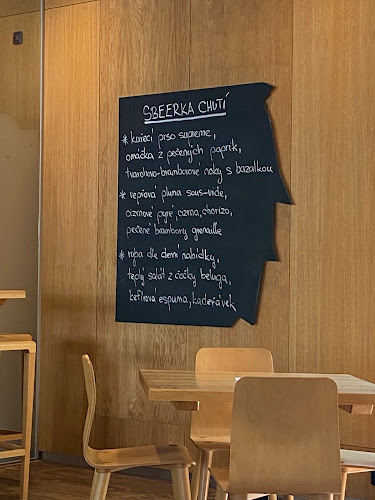 SBEERKA CHUTÍ
* kuřecí prso supreme,
omáčka z pečených paprik,
tvarohovo-bramborové noky s bazalkou
* vepřová pluma sous-vide,
cizrnové pyré, cizrna, chorizo,
pečené brambory grenaille
* ryba dle denní nabídky,
teplý salát z čočky beluga,
kefírová espuma, kadeřávek